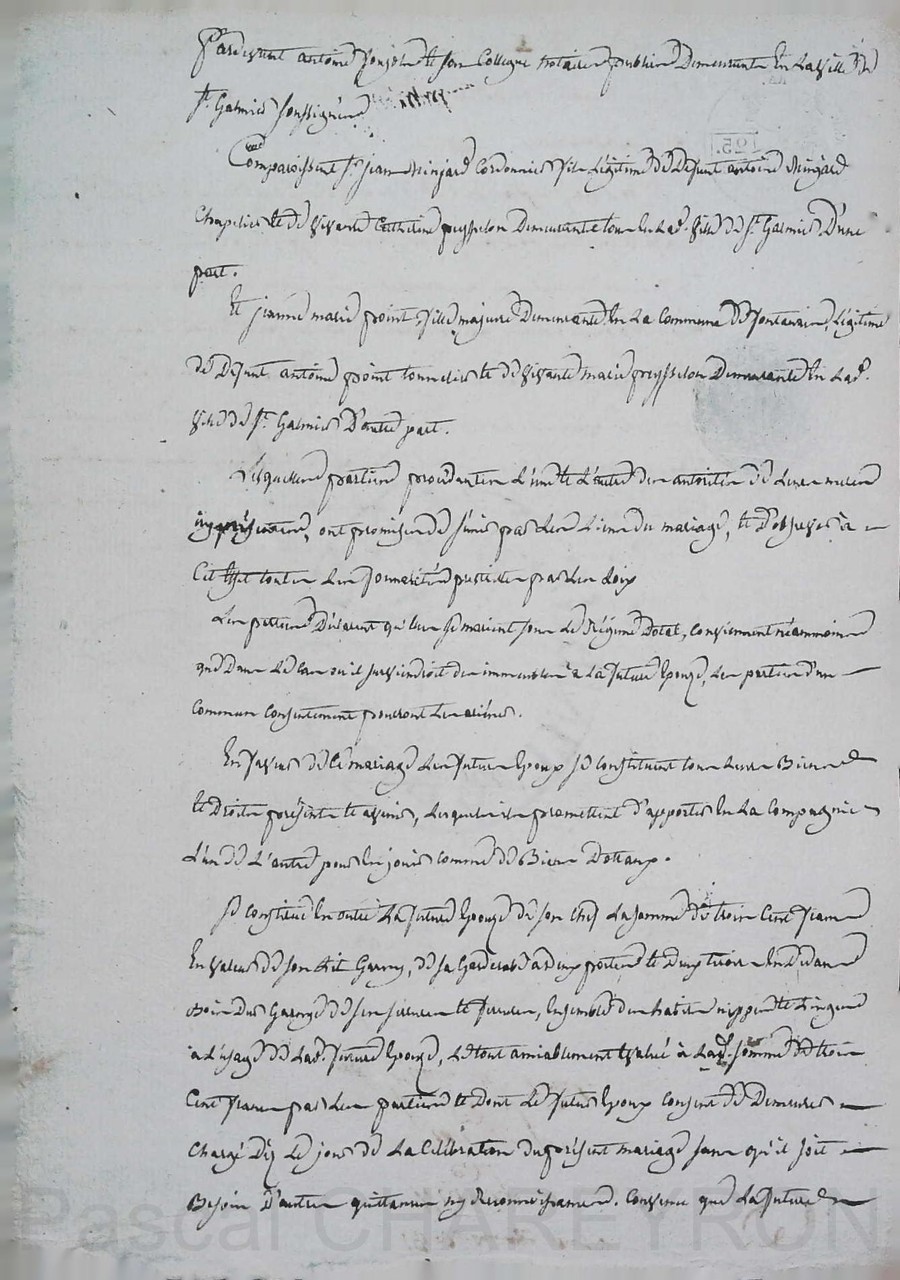 Pardevant antoine et son Collegue notaires publics Demeurants En La ville De
St. Galmier soussignés
Comparoissent Sr. jean Minjard Cordonnier fils Légitime de Défunt antoine Minjard
Chapelier et de vivante Catherine peysselon Demeurants tous En Lade. ville de St. Galmier D'une
part.
Et jeanne marie point, fille majeure Demeurante En La Commune De fontanès, Légitime
de Défunt antoine point tonnelier et de vivante marie preysselon Demeurante En Lade.
ville de St. Galmier D'autre part.
Lesquelles parties procédantes L'une et L'autre des autorités de Leurs mères
ont promis de s'unir par Les Liens du mariage, et D'observer à
Cet Effet toutes Les formalités prescrites par Les Loix
Les parties Déclarent qu'elles se marient sous Le Régime Dotal, Conviennent néanmoins
que Dans Le Cas où il surviendroit des immeubles à La future Epouse, Les parties d'un
Commun Consentement pourront Les aliéner.
En faveur de Ce mariage Les futurs Epoux se Constituent tous Leurs Biens
et Droits présents et avenir, Lesquels ils promettent D'apporter En La Compagnie
L'un de L'autre pour En jouir Comme de Biens Dottaux.
Se Constitue En outre La future Epouse de son Chef La somme de trois Cents francs
En valeur de son Lit Garny, de sa Garderobe à Deux portes et Deux tiroirs En Dedans
Bois Dur Garnye de ses serrures et ferrures, Ensemble des habits nippes et Linges
à L'usage de Lade. future Epouse, Le tout amiablement Evalué à Lade. somme de trois
Cents francs par Les parties et Dont Le futur Epoux Consent de Demeurer
Chargé Dez Le jour de La Célébration du présent mariage sans qu'il soit
Besoin D'autre quittance ny Reconnoissance. Convenu que La future
Pascal CHAREYRON